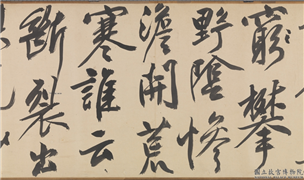 窮攀
野陰慘
澹開荒
寒誰云
斷裂出
國立故宮博物院